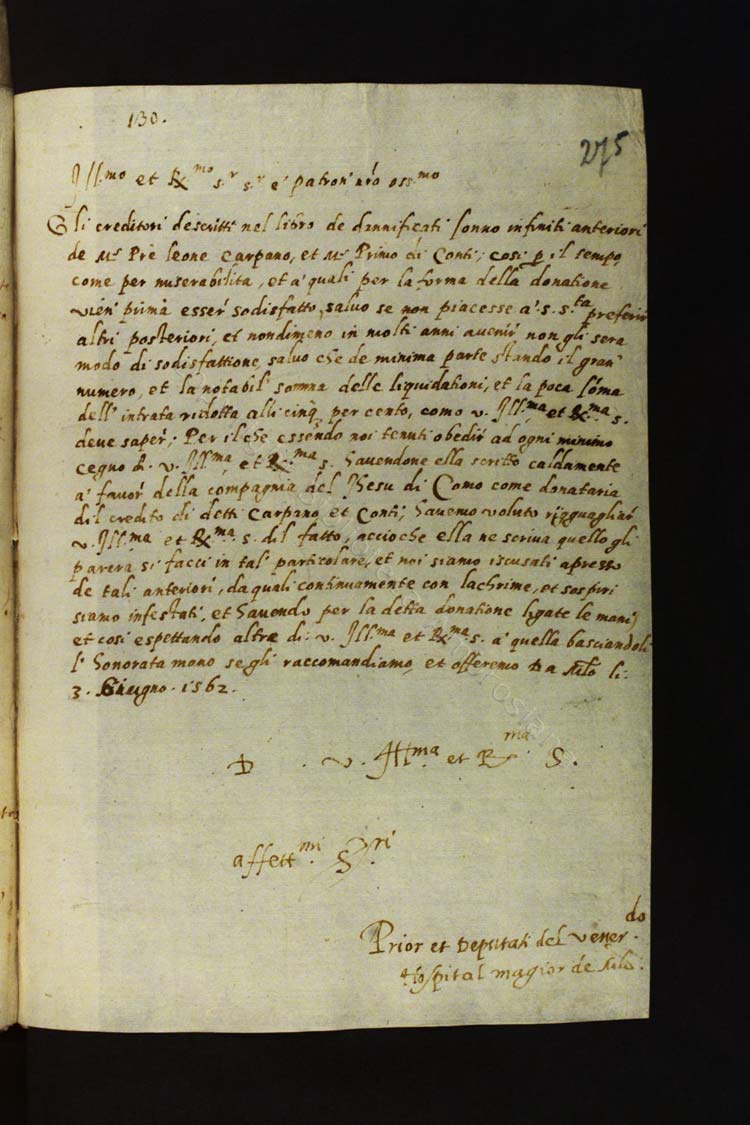 130.
275
Ill.mo et R.mo s.r s.r e patron nrõ oss.mo
Gli creditori descritti nel libro de dannificati sonno infiniti anteriori
de M.r Pre leone Carpano, et M.r Primo di Conti, cosi p il tempo
come per miserabilita, et a' quali per la forma della donatione
vien' prima esser sodisfatto, salvo se non piacesse a' s. s.ta preferir
altri posteriori, et nondimeno in molti anni avenir non gli sera
modo di sodisfattione, salvo che de minima parte stando il gran'
numero, et la notabil' somma delle liquidationi, et la poca sõma
dell' intrata ridotta alli cinq per cento, como v. Ill.ma et R.ma s.
deve saper; Per il che essendo noi tenuti obedir ad ogni minimo
cegno d. v. Ill.ma et R.ma s. havendone ella scritto caldamente
a' favor della compagnia del Jhesu di Como come donataria
dil credito di detti Carpano et Conti; havemo voluto ragguagliar
v. Ill.ma et R.ma s. dil fatto, accioche ella ne scriva quello gli
parera si facci in tal' particolare, et noi siamo iscusati apresso
de tali anteriori, da quali continuamente con lachrime, et sospiri
siamo infestati, et havendo per la detta donatione ligate le mani,
et cosi espettando altro di v. Ill.ma et R.ma s. a' quella basciandoli
l' honorata mano se gli raccomandiamo, et offeremo Da Mlo li
3. Giugno. 1562.
D v. Ill.ma et R.ma S.
affett.mi S.ri
Prior et Deputati del Vener.do
Hospital magior de Mlo.